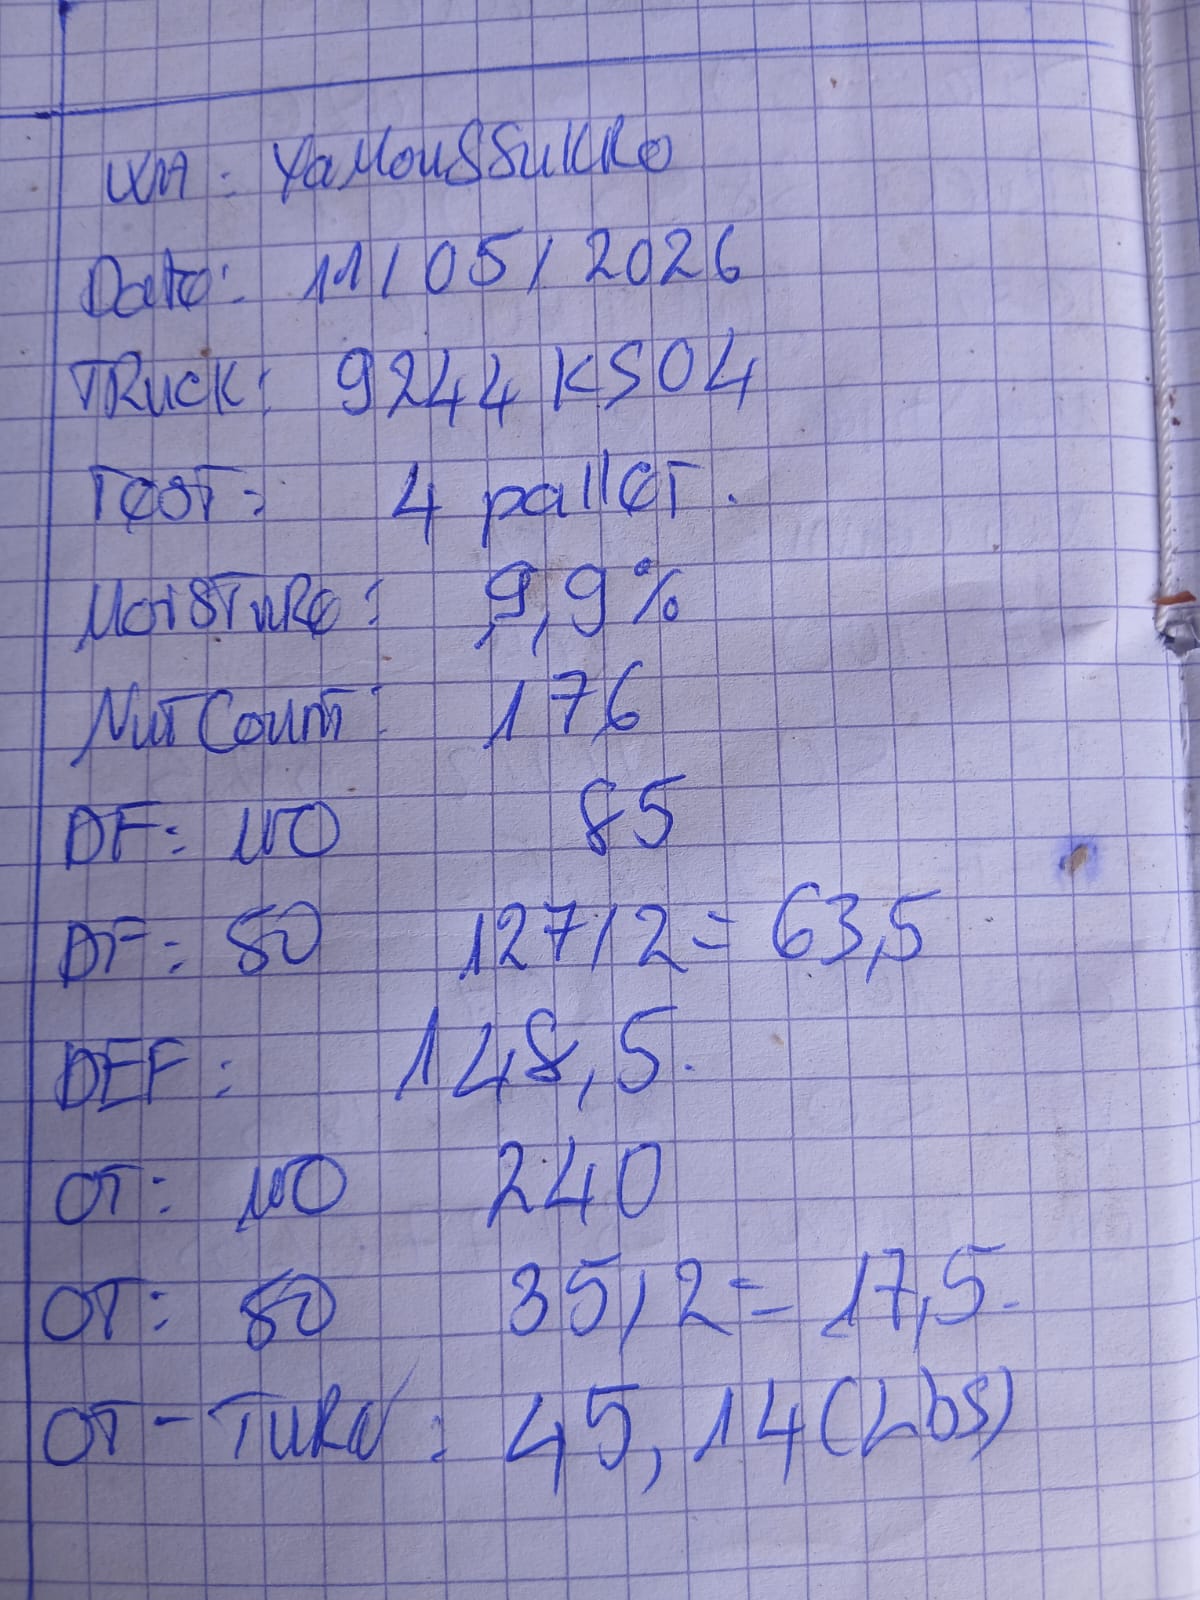 WH: YaMouSSuKRo
Date: 11/05/2026
TRucK: 9244KS04
TeST: 4 palleT.
MoiSTuRe: 9,9%
NuTCounT: 176
DF: 100 85
DF: 50 127/2=63,5
DEF: 148,5.
OT: 100 240
OT: 50 35/2=17,5.
OT-TURN: 45,14(Lbs)